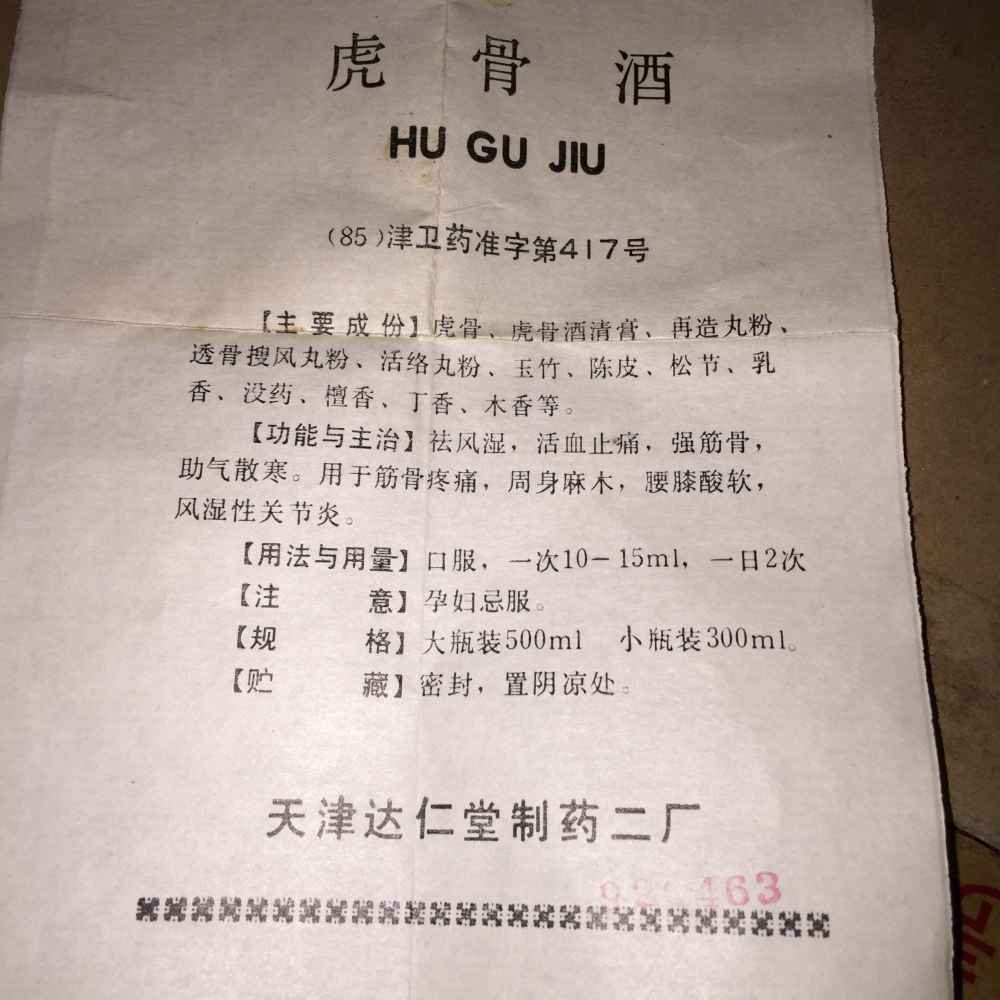 虎骨酒
HU GU JIU
(85)津卫药准字第417号
【主要成份】虎骨、虎骨酒清膏、再造丸粉、
透骨搜风丸粉、活络丸粉、玉竹、陈皮、松节、乳
香、没药、檀香、丁香、木香等。
【功能与主治】祛风湿，活血止痛，强筋骨，
助气散寒。用于筋骨疼痛，周身麻木，腰膝酸软，
风湿性关节炎。
【用法与用量】口服，一次10－15ml，一日2次
【注意】孕妇忌服。
【规格】大瓶装500ml 小瓶装300ml。
【贮藏】密封，置阴凉处。
天津达仁堂制药二厂